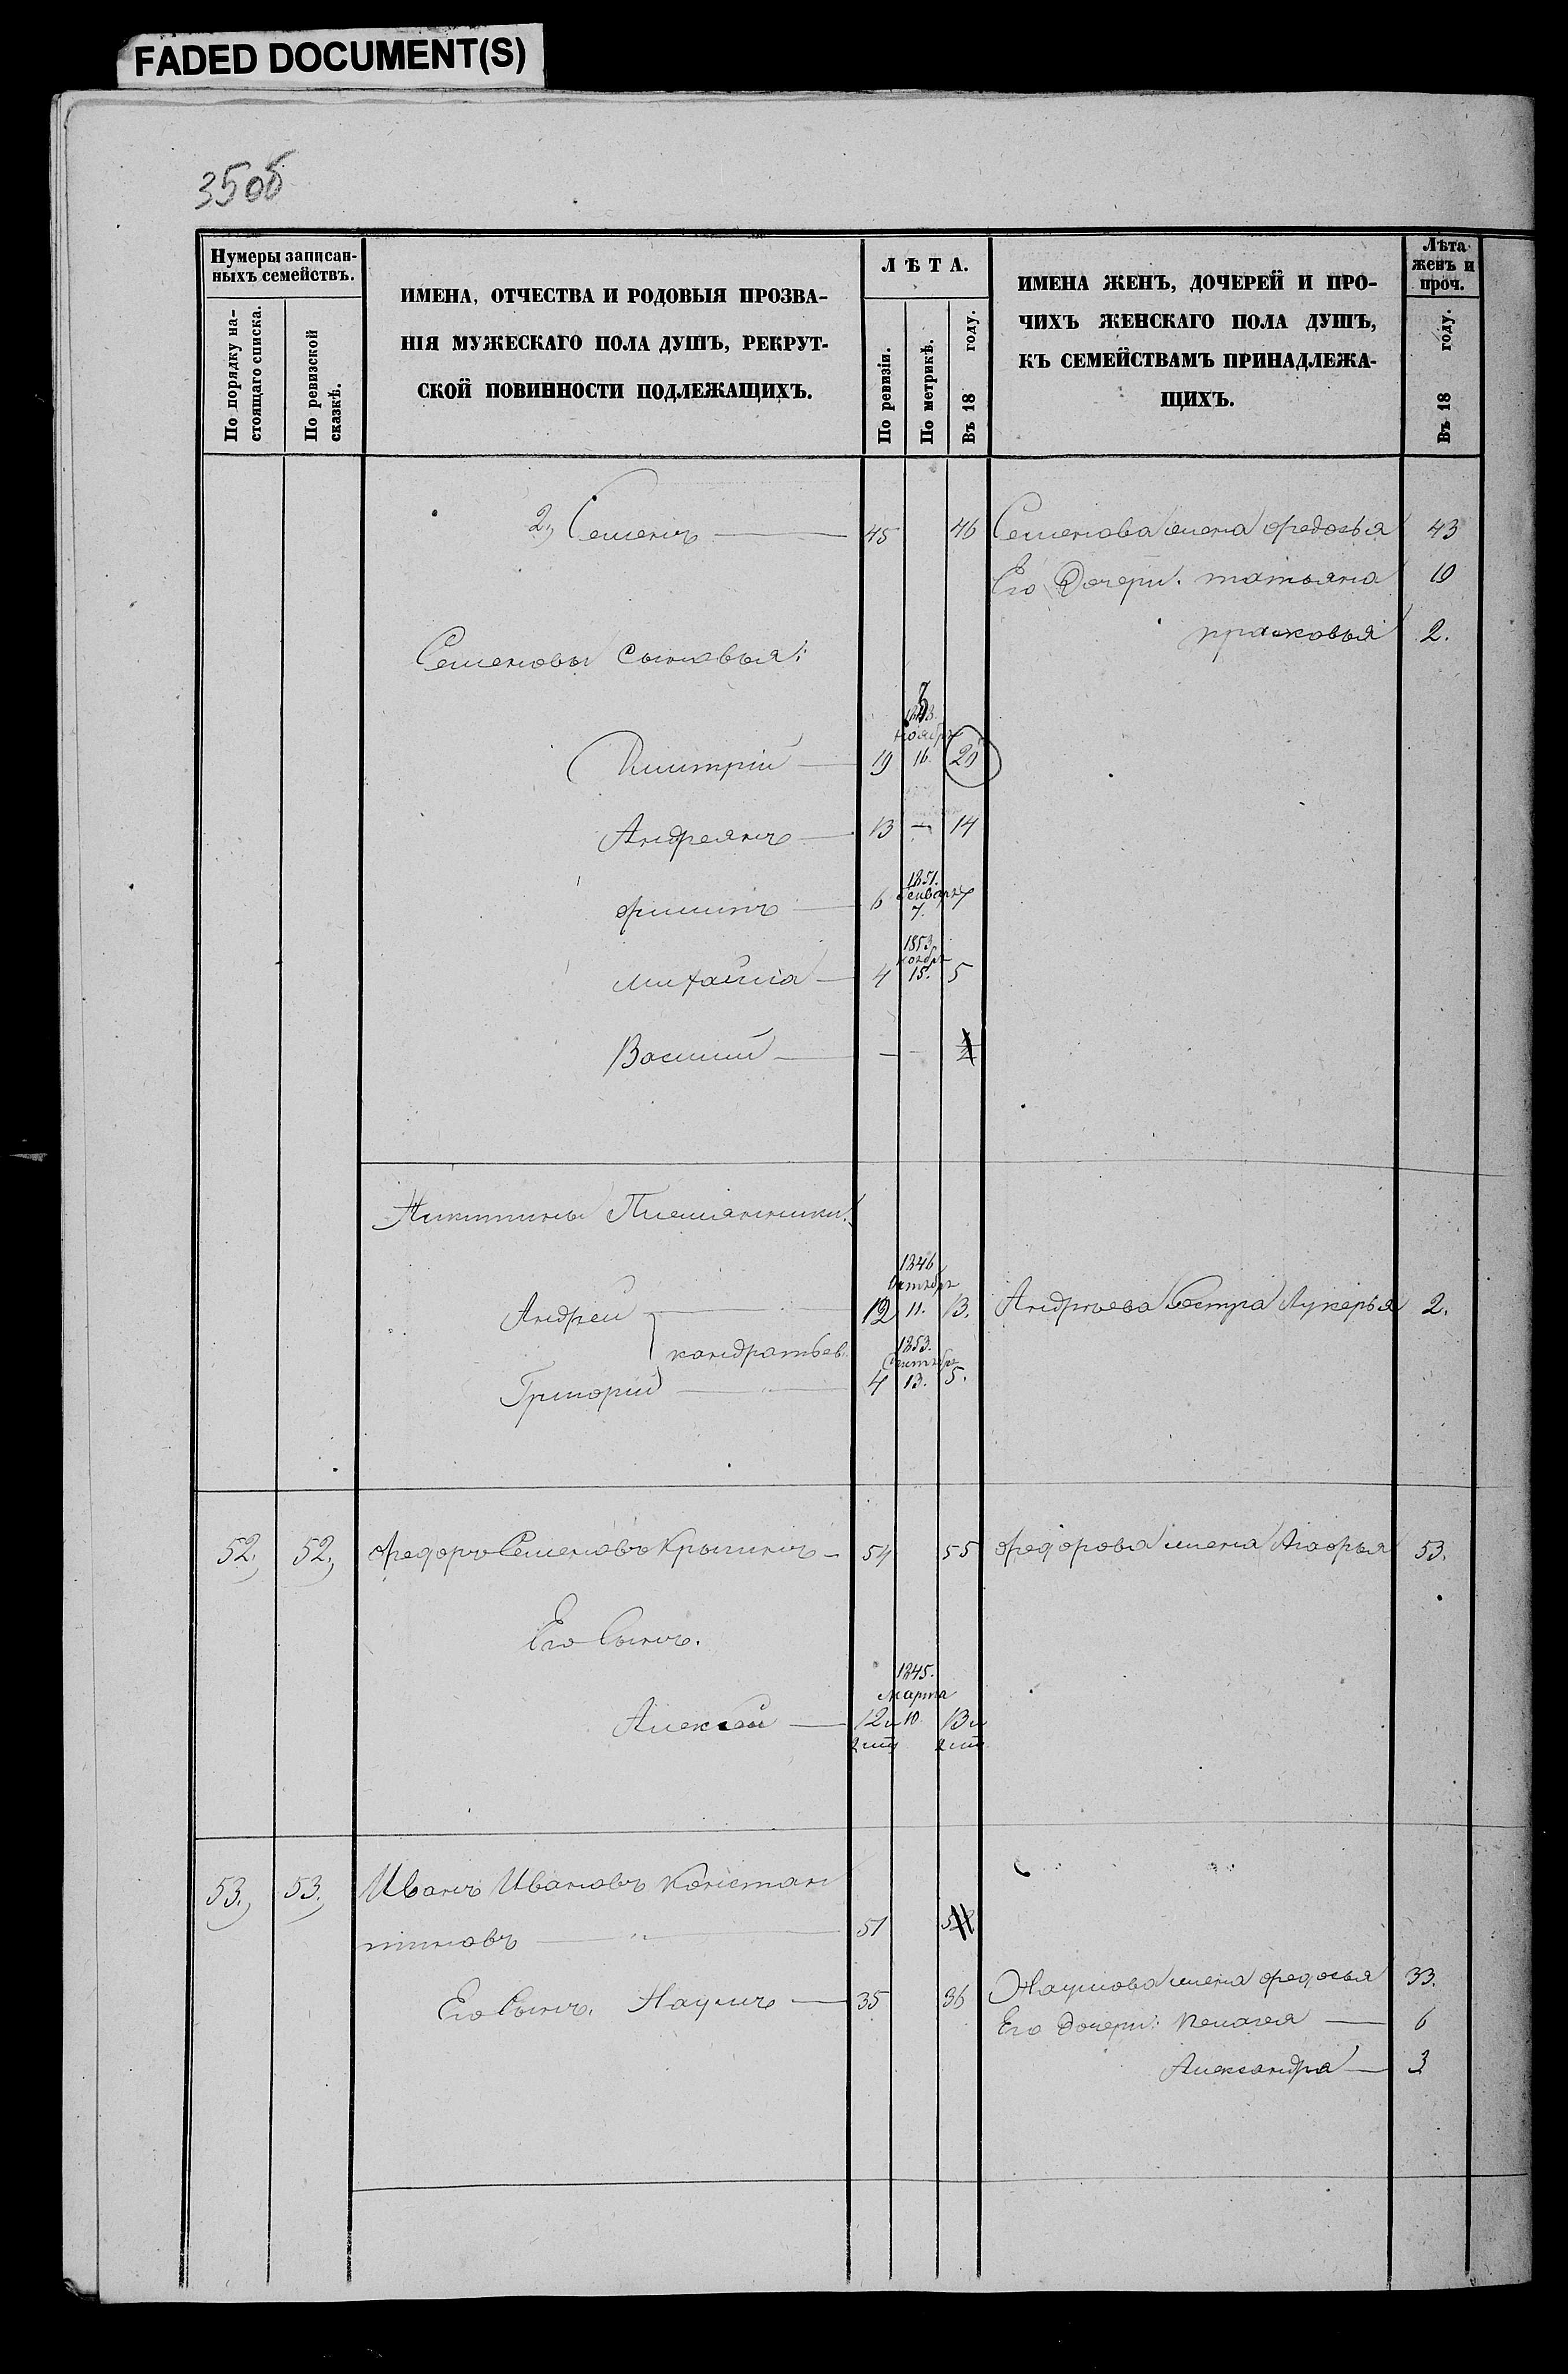 FADED DOCUMENT(S)
35об
Нумеры записан-
ныхъ семействъ.
По порядку на-
стоящаго списка.
По ревизской
сказкѣ.
ИМЕНА, ОТЧЕСТВА И РОДОВЫЯ ПРОЗВА-
НІЯ МУЖЕСКАГО ПОЛА ДУШЪ, РЕКРУТ-
СКОЙ ПОВИННОСТИ ПОДЛЕЖАЩИХЪ.
ЛѢТА.
По ревизіи.
По метрикѣ.
Въ 18 году.
ИМЕНА ЖЕНЪ, ДОЧЕРЕЙ И ПРО-
ЧИХЪ ЖЕНСКАГО ПОЛА ДУШЪ,
КЪ СЕМЕЙСТВАМЪ ПРИНАДЛЕЖА-
ЩИХЪ.
Лѣта
женъ и
проч.
Въ 18 году.
2, Семенъ 45 46 Семенова жена Федосья 43
Его Дочери: татьяна 19
прасковья 2.
Семеновы Сыновья:
Ноябр
Дмитрій 19 16. 20
Андреянъ 13 — 14
1851.
Генваря
филипъ 6 7. 7
1853.
ноябр
михаила 4 15. 5
Василий — —
Никитины Племянники:
1846
Октябр
Андреи 12 11. 13. Андрѣева Сестра Лукерья 2.
кондратьев
1853.
Сентябр
Григорій 4 13. 5.
52. 52, Федоръ Семеновъ Крылинъ 54 55 Федорова жена Агафья 53.
Его Сынъ.
1845.
Марта
Алексѣи 12и 10. 13и
53., 53., Иванъ Ивановъ Констан
тиновъ 51
Его Сынъ. Наумъ 35 36 Наумова жена Федосья 33.
Его дочери: Пелагея 6
Александра 3